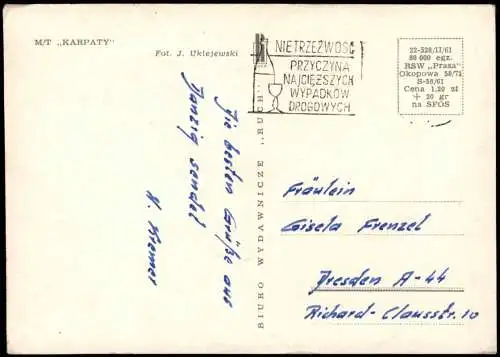 M/T „KARPATY"
Fot. J. Uklejewski
NIETRZEŹWOŚĆ
PRZYCZYNĄ
NAJCIĘŻSZYCH
WYPADKÓW
DROGOWYCH
22-528/II/61
80 000 egz.
RSW „Prasa"
Okopowa 58/72
S-58/61
Cena 1,20 zł
+ 20 gr
na SFOS
Die besten Grüße aus
Danzig sendet
H. Kremer
BIURO WYDAWNICZE „RUCH"
Fräulein
Gisela Frenzel
Dresden A-44
Richard-Claussstr. 10